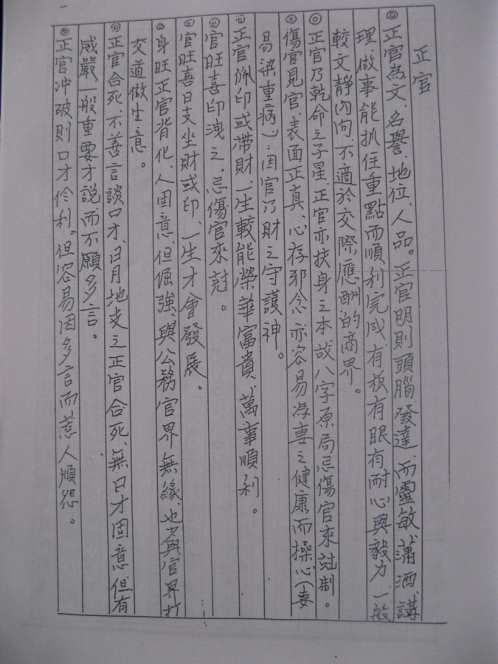 正官
正官為文、名譽、地位、人品。正官明則頭腦發達、而靈敏、瀟洒、講
理、做事能抓住重點而順利完成、有板有眼有耐心與毅力、一般
較文靜內向、不適於交際應酬的商界。
正官乃乾命之子星正官亦扶身之本、故八字原局忌傷官來尅制。
傷官見官、表面正真、心存邪念、亦容易為妻之健康而操心(妻
易染重病)、因官乃財之守護神。
正官佩印或帶財、一生較能榮華富貴、萬事順利。
官旺喜印洩之、忌傷官來尅。
官旺喜日支坐財或印、一生才會發展。
身旺正官背化、人固意、但倔強、與公務官界無緣、也少與官界打
交道做生意。
正官合死、不善言談口才、日月地支之正官合死、無口才固意、但有
威嚴、一般重要才說而不願多言。
正官沖破、則口才伶利。但容易因多言而惹人煩怨。